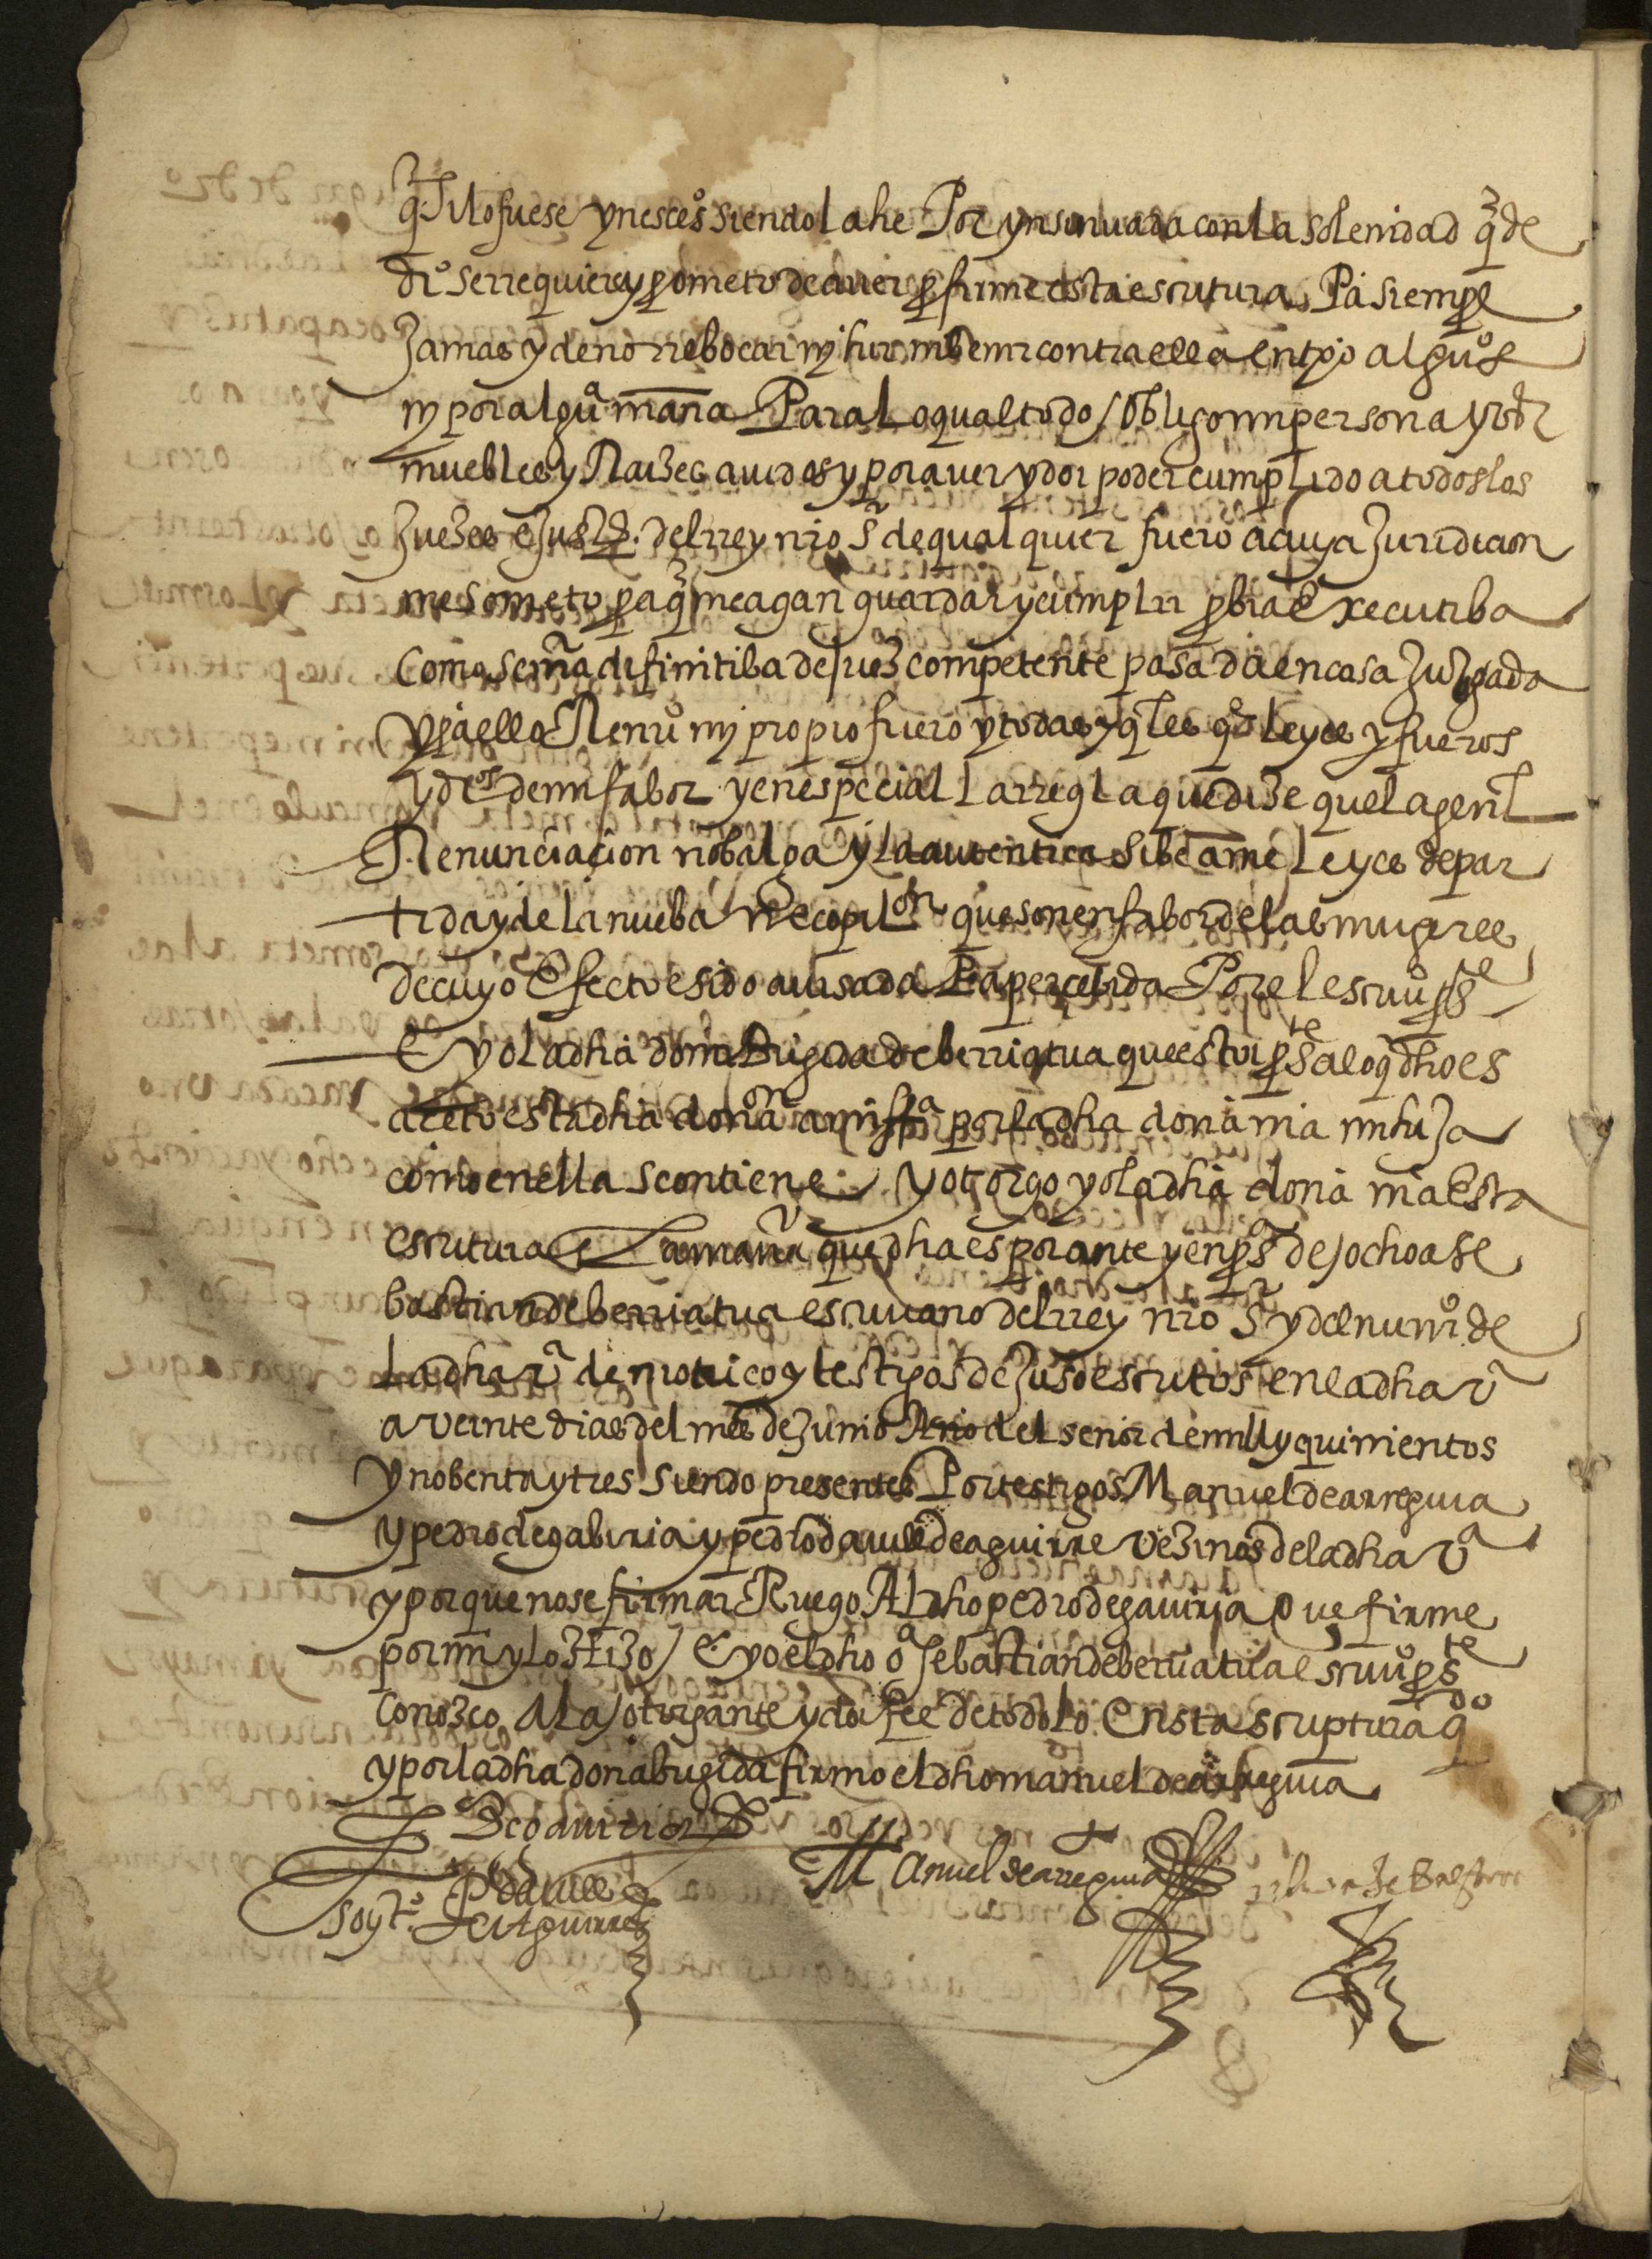 q̃ silo fuese ynesces.o siendo la he Por ynsinuada con la solenidad q̃ de
dr.o se rrequiere y prometo de aver por firme esta escritura Pa siempre
Jamas y de no rrebocar ny hir ni benir contra ella en tpo alguº
ny por algua manna Para lo qual todo obligo mi persona y
muebles y Raizes avidos y por aver y doi poder cumplido a todos los
Juezes e Just.as del rrey nro S.r de qual quier fuero a cuya Juridicion
me someto pa q̃ me agan guardar y cumplir por bia Executiba
Como sentª difinitiba de Juez competente pasada en cosa Juzgada
Y pa ello Renu.o my propio fuero y todas y q.les q.r leyes y fueros
y dr.os de mi fabor y en especial la rregla que dize que la gen.l
Renunciacion no balga y la autentica sibe ame leyes de par
tida y de la nueba Recopil.on que son en fabor de las mugeres
de cuyo Efecto e sido avisada E apercebida Por el escriu.o ps.te
E yo la dha doña Brigida de berriatua que estoi ps.te a lo q̃ dho es
aceto esta dha don.on a mi fecha por la dha doña mª mi hija
como en ella se contiene y otorgo yo la dha doña mª Esta
escritura E la manera que dha es por ante y en ps.ª de Jochoa se
bastian de berriatua escriuano del rrey nro S.r y del num.o de
la dha v.ª de motrico y testigos de Juso escritos en la dha v.ª
a veinte dias del mes de Junio Año del señor de mill y quinientos
y nobenta y tres siendo presentes Por testigos Manuel de arreguia
y pedro de gabiria y pedro daville de aguirre vezinos de la dha v.ª
y porque no se firmar Ruego Al dho pedro de gauiria que firme
por mi y lo hizo E yo el dho oª sebastian de beriatua escriu.o ps.te
conozco A la otorgante y doi fee de todo lo En esta scriptura q.do
y por la dha doña brigida firmo el dho manuel de arreguia
P.o de auiria
Manuel de arreguia
soy t.o P.o daville de Aguirre